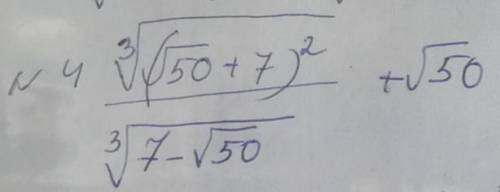 N 4 \frac{\sqrt[3]{(\sqrt{50}+7)^2}}{\sqrt[3]{7-\sqrt{50}}} + \sqrt{50}